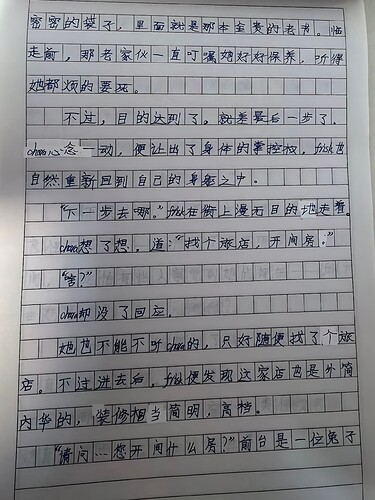 密密的袋子，里面就是那本金贵的老书。临
走前，那老家伙一直叮嘱她好好保养，听得
她都烦的要死。
不过，目的达到了，就差最后一步了。
chara心念一动，便让出了身体的掌控权，frisk也
自然重新回到自己的身躯之中。
“下一步去哪。”frisk在街上漫无目的地走着。
chara想了想，道：“找个旅店，开间房。”
“啥？”
chara却没了回应。
她也不能不听chara的，只好随便找了个旅
店。不过进去后，frisk便发现这家店也是外简
内华的，装修相当简明，高档。
“请问…您开间什么房？”前台是一位兔子